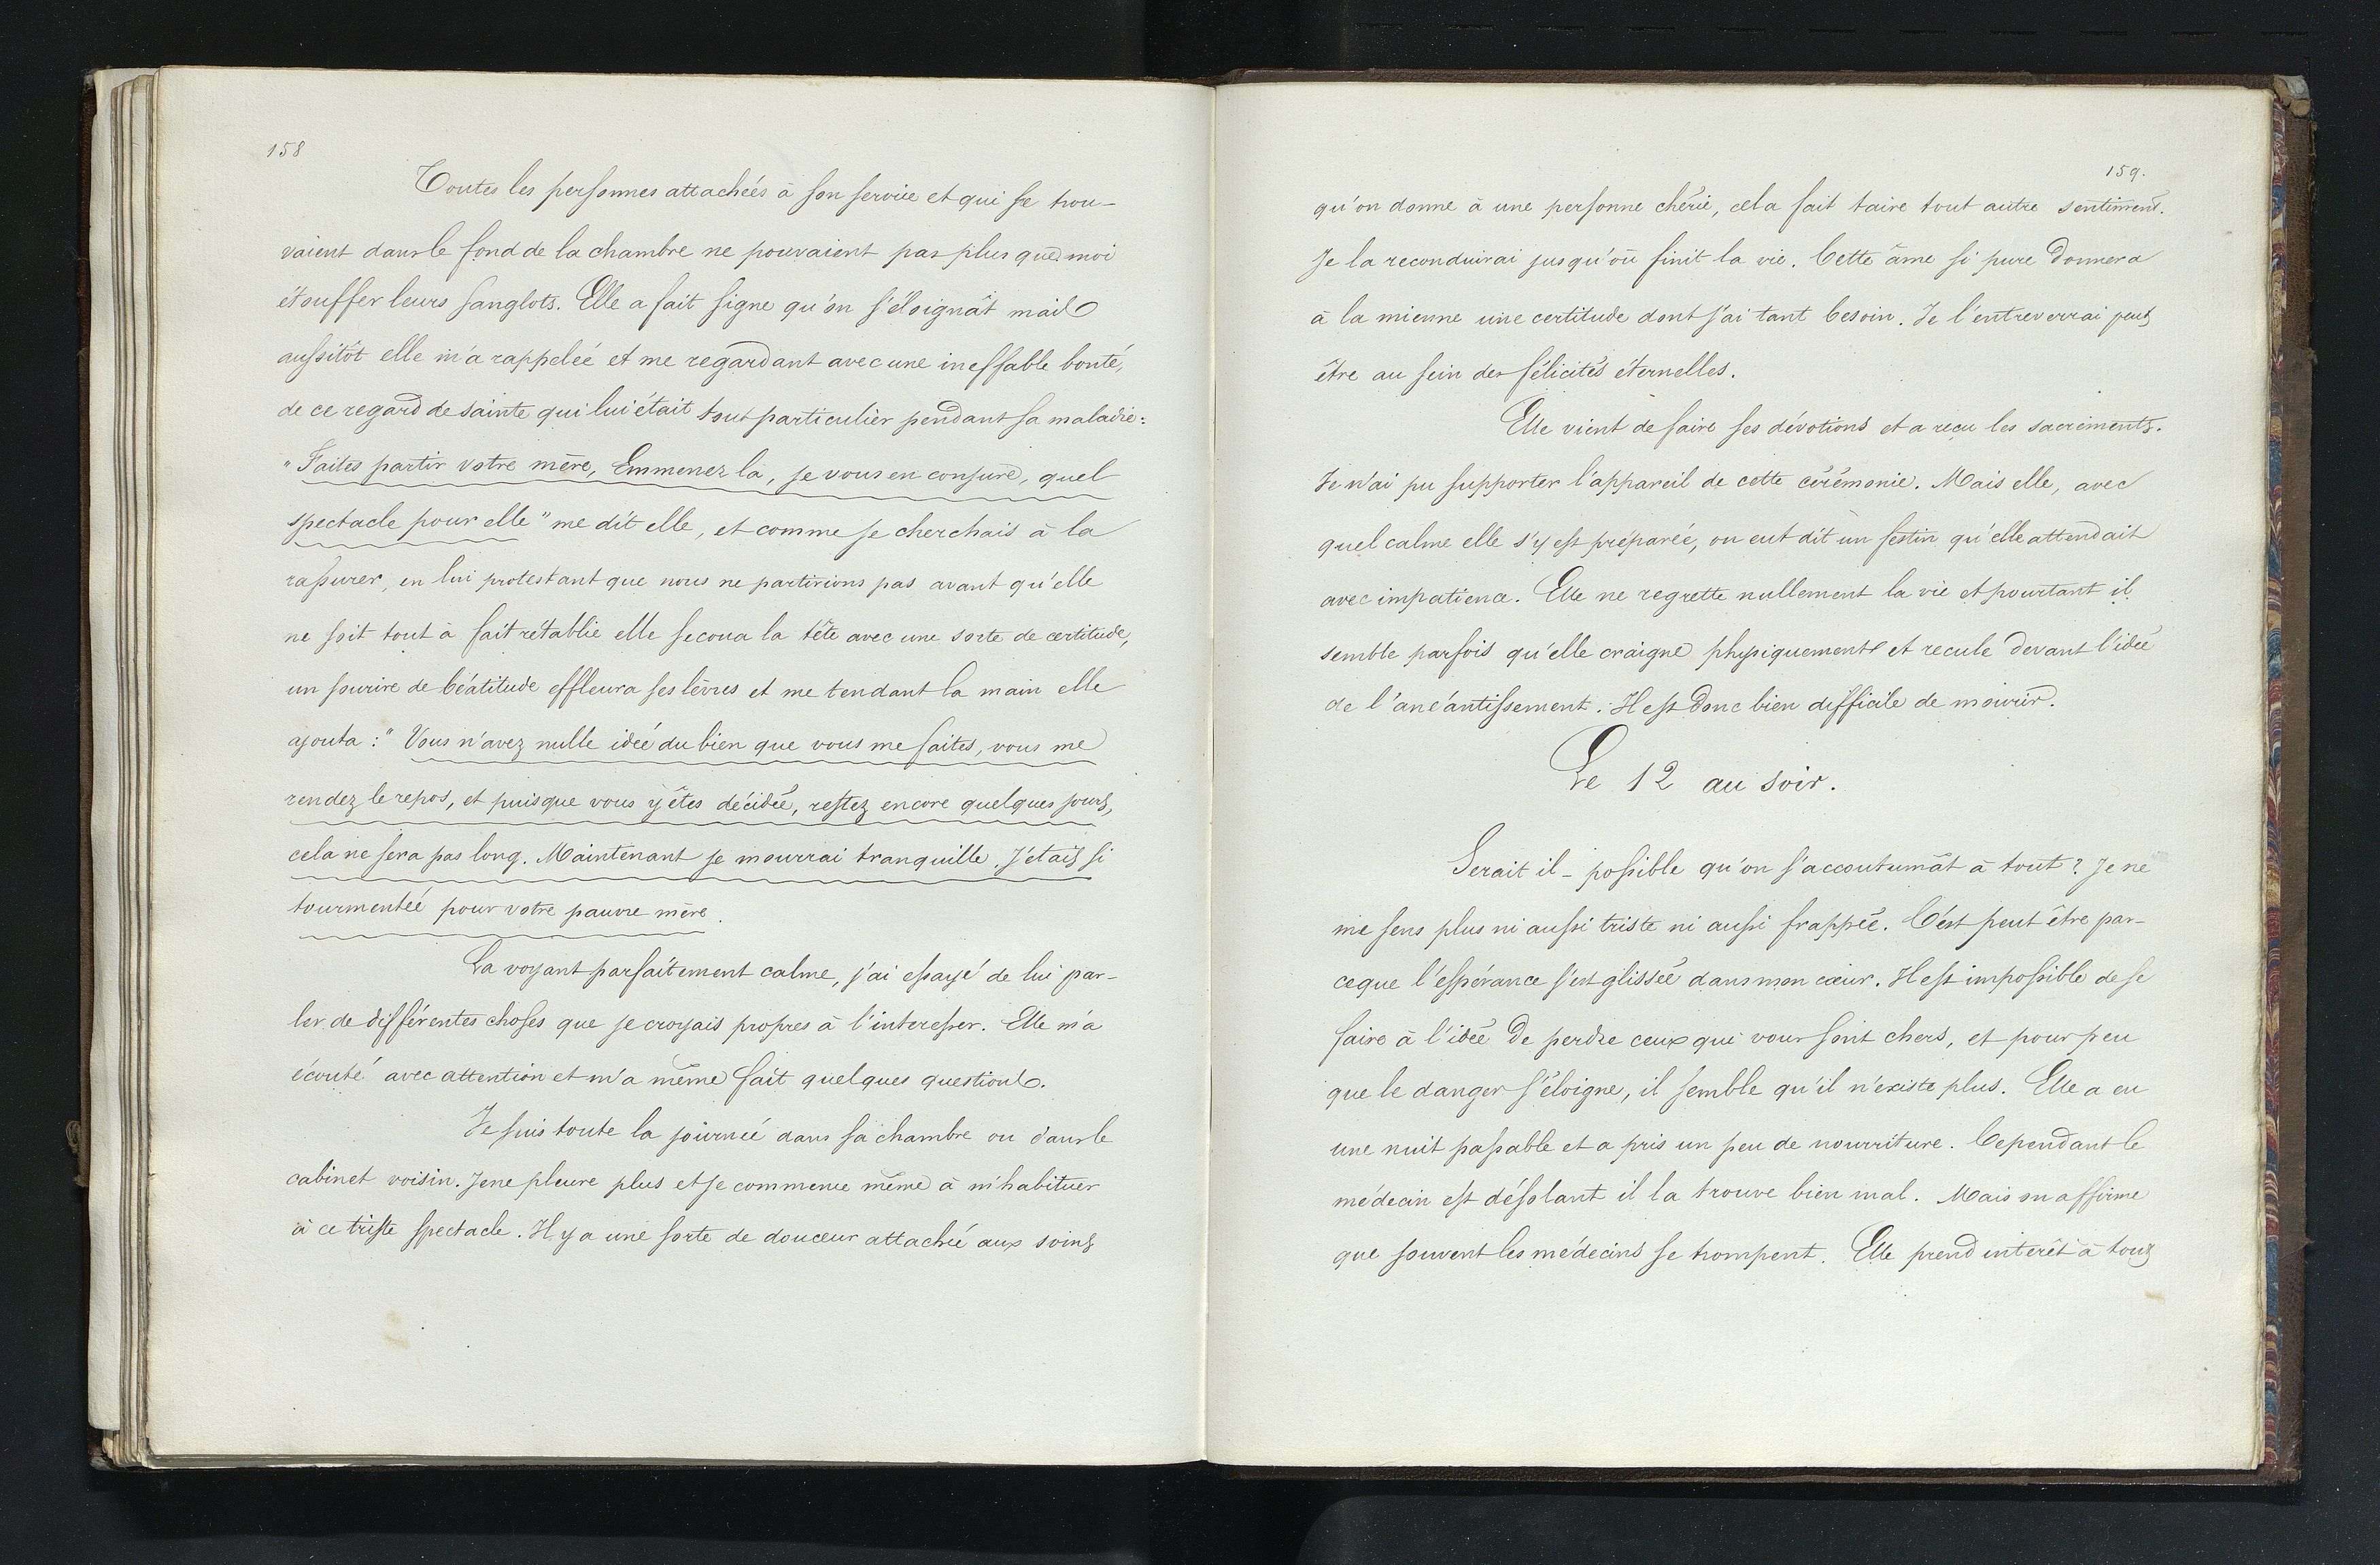 158
Toutes les personnes attachées à son service et qui se trou-
vaient dans le fond de la chambre ne pouvaient pas plus que moi
étouffer leurs sanglots. Elle a fait signe qu'on s'éloignât mais
aussitôt elle m'a rappelée et me regardant avec une ineffable bonté,
de ce regard de sainte qui lui était tout particulier pendant sa maladie:
"Faites partir votre mère, Emmenez la, je vous en conjure, quel
spectacle pour elle" me dit elle, et comme je cherchais à la
rassurer, en lui protestant que nous ne partirions pas avant qu'elle
ne soit tout à fait rétablie elle secoua la tête avec une sorte de certitude,
un sourire de béatitude effleura ses lèvres et me tendant la main elle
ajouta: "Vous n'avez nulle idée du bien que vous me faites, vous me
rendez le repos, et puisque vous y êtes décidée, restez encore quelques jours,
cela ne sera pas long. Maintenant je mourrai tranquille. J'étais si
tourmentée pour votre pauvre mère.
La voyant parfaitement calme, j'ai essayé de lui par-
ler de différentes choses que je croyais propres à l'interesser. Elle m'a
écouté avec attention et m'a même fait quelques questions.
Je suis toute la journée dans sa chambre ou dans le
cabinet voisin. Je ne pleure plus et je commence même à m'habituer
à ce triste spectacle. Il y a une sorte de douceur attachée aux soins
159.
qu'on donne à une personne chérie, cela fait taire tout autre sentiment.
Je la reconduirai jusqu'où finit la vie. Cette âme si pure donnera
à la mienne une certitude dont j'ai tant besoin. Je l'entreverrai peut
être au sein des félicités éternelles.
Elle vient de faire ses dévotions et a reçu les sacréments.
Je n'ai pu supporter l'appareil de cette cérémonie. Mais elle, avec
quel calme elle s'y est préparée, on eut dit un festin qu'elle attendait
avec impatience. Elle ne regrette nullement la vie et pourtant il
semble parfois qu'elle craigne physiquement et recule devant l'idée
de l'anéantissement. Il est donc bien difficile de mourir.
Le 12 au soir.
Serait il - possible qu'on s'accoutumât à tout? Je ne
me sens plus ni aussi triste ni aussi frappée. C'est peut être par-
ceque l'espérance s'est glissée dans mon cœur. Il est impossible de se
faire à l'idée de perdre ceux qui vous sont chers, et pour peu
que le danger s'éloigne, il semble qu'il n'existe plus. Elle a eu
une nuit passable et a pris un peu de nourriture. Cependant le
médecin est désolant il la trouve bien mal. Mais on affirme
que souvent les médecins se trompent. Elle prend interêt à tout